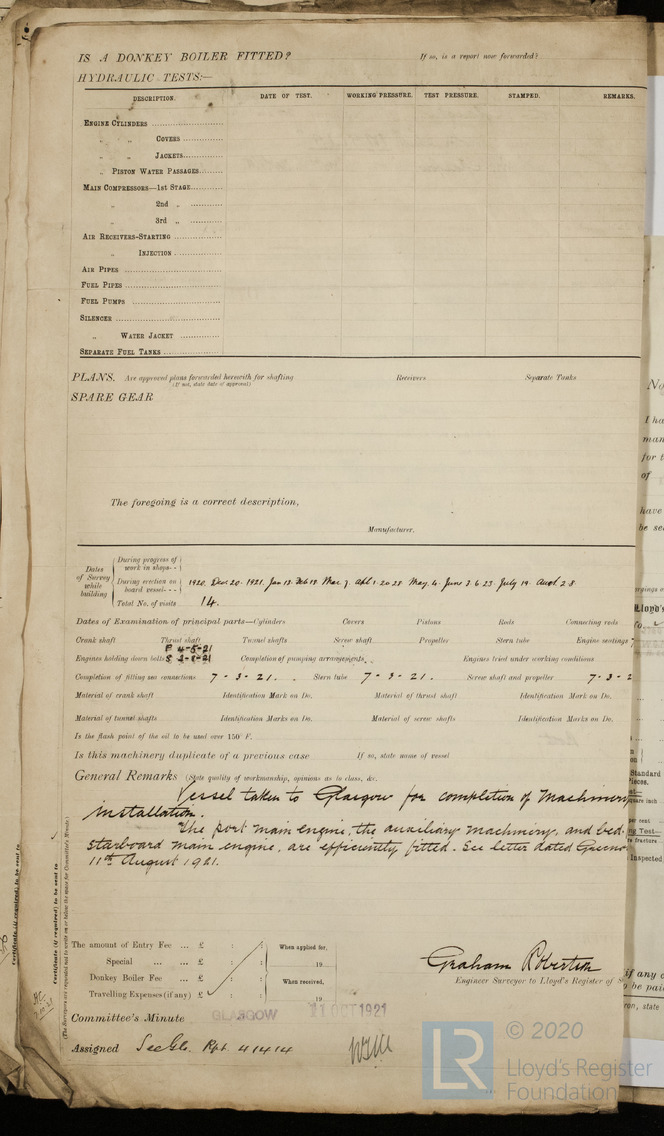 IS A DONKEY BOILER FITTED? If so, is a report now forwarded?
HYDRAULIC TESTS:—
DESCRIPTION. DATE OF TEST. WORKING PRESSURE. TEST PRESSURE. STAMPED. REMARKS.
ENGINE CYLINDERS
„ „ COVERS
„ „ JACKETS
„ PISTON WATER PASSAGES
MAIN COMPRESSORS—1st STAGE
„ 2nd „
„ 3rd „
AIR RECEIVERS-STARTING
„ INJECTION
AIR PIPES
FUEL PIPES
FUEL PUMPS
SILENCER
„ WATER JACKET
SEPARATE FUEL TANKS
PLANS. Are approved plans forwarded herewith for shafting Receivers Separate Tanks
(If not, state date of approval)
SPARE GEAR
The foregoing is a correct description,
Manufacturer.
Dates of Survey while building
During progress of work in shops - -
During erection on board vessel - - - 1920. Dec 20. 1921. Jan 13. Feb 18. Mar 7. Apl 1. 20. 28. May. 4. June 3. 6. 23. July 19. Aug 2. 8.
Total No. of visits 14.
Dates of Examination of principal parts—Cylinders Covers Pistons Rods Connecting rods
Crank shaft Thrust shaft Tunnel shafts Screw shaft Propeller Stern tube Engine seatings 7
Engines holding down bolts Completion of pumping arrangements Engines tried under working conditions
Completion of fitting sea connections 7-3-21. Stern tube 7-3-21. Screw shaft and propeller 7-3-2
Material of crank shaft Identification Mark on Do. Material of thrust shaft Identification Mark on Do.
Material of tunnel shafts Identification Marks on Do. Material of screw shafts Identification Marks on Do.
Is the flash point of the oil to be used over 150° F.
Is this machinery duplicate of a previous case If so, state name of vessel
General Remarks (State quality of workmanship, opinions as to class, &c.
Vessel taken to Glasgow for completion of Machinery
installation.
The port main engine, the auxiliary machinery, and bed
starboard main engine, are efficiently fitted. See letter dated
11th August 1921.
The amount of Entry Fee ... £ : : When applied for,
Special ... ... £ : : 19
Donkey Boiler Fee ... £ : : When received,
Travelling Expenses (if any) £ : : 19
Graham Robertson
Engineer Surveyor to Lloyd's Register of S
Committee's Minute GLASGOW 11 OCT 1921
Assigned See Gls. Rpt. 41414
© 2020
LR
Lloyd's Register
Foundation